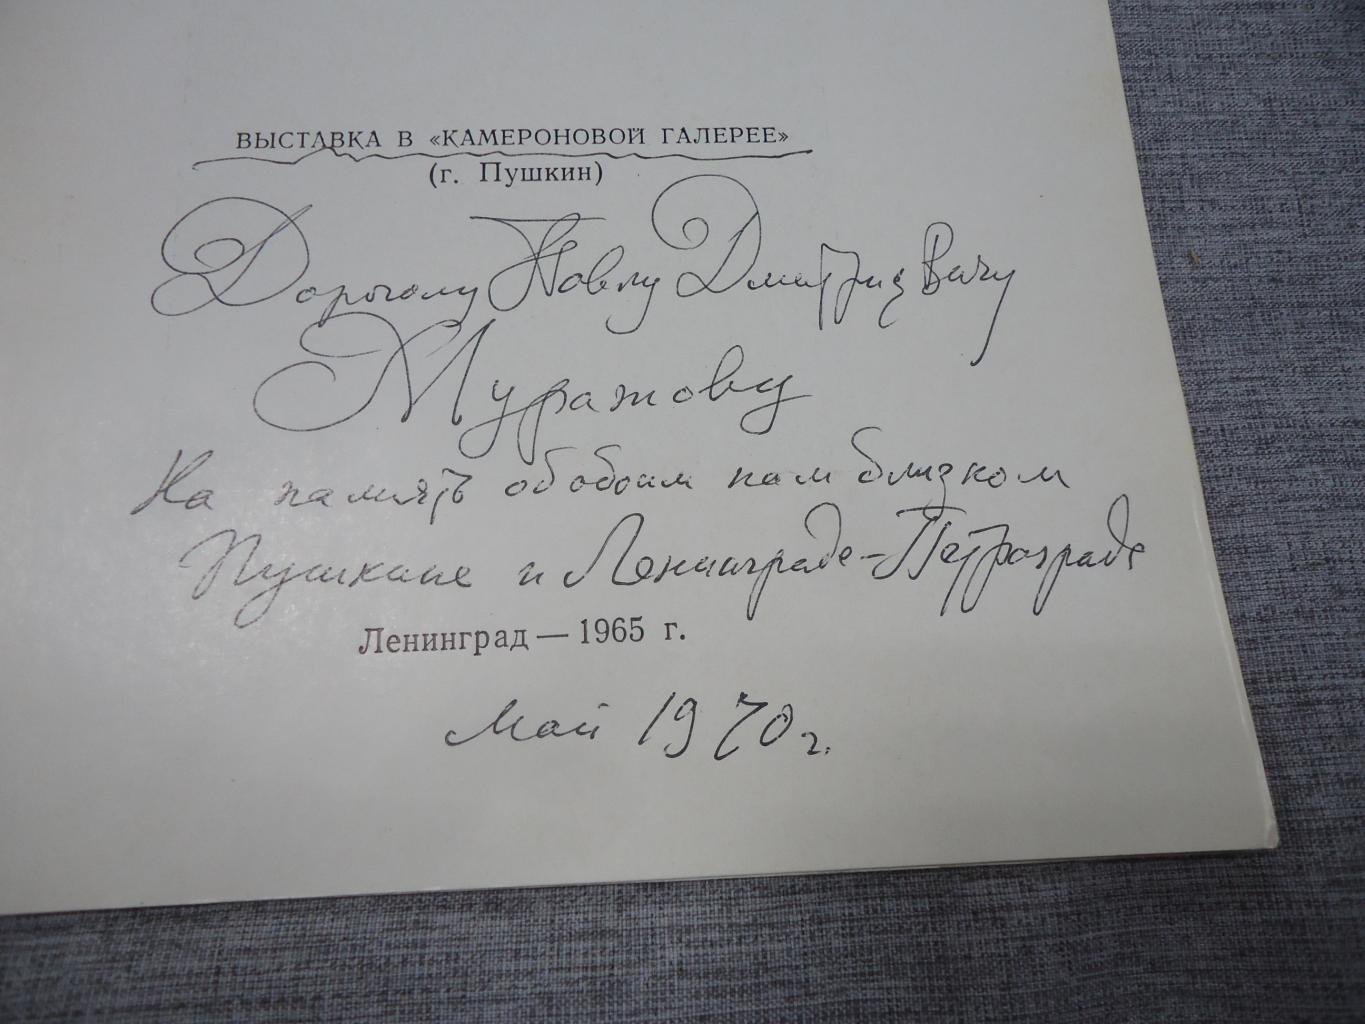 ВЫСТАВКА В «КАМЕРОНОВОЙ ГАЛЕРЕЕ»
(г. Пушкин)
Дорогому Павлу Дмитриевичу
Муратову
На память об обоим нам близком
Пушкине и Ленинграде-Петрограде
Ленинград — 1965 г.
Май 1970 г.